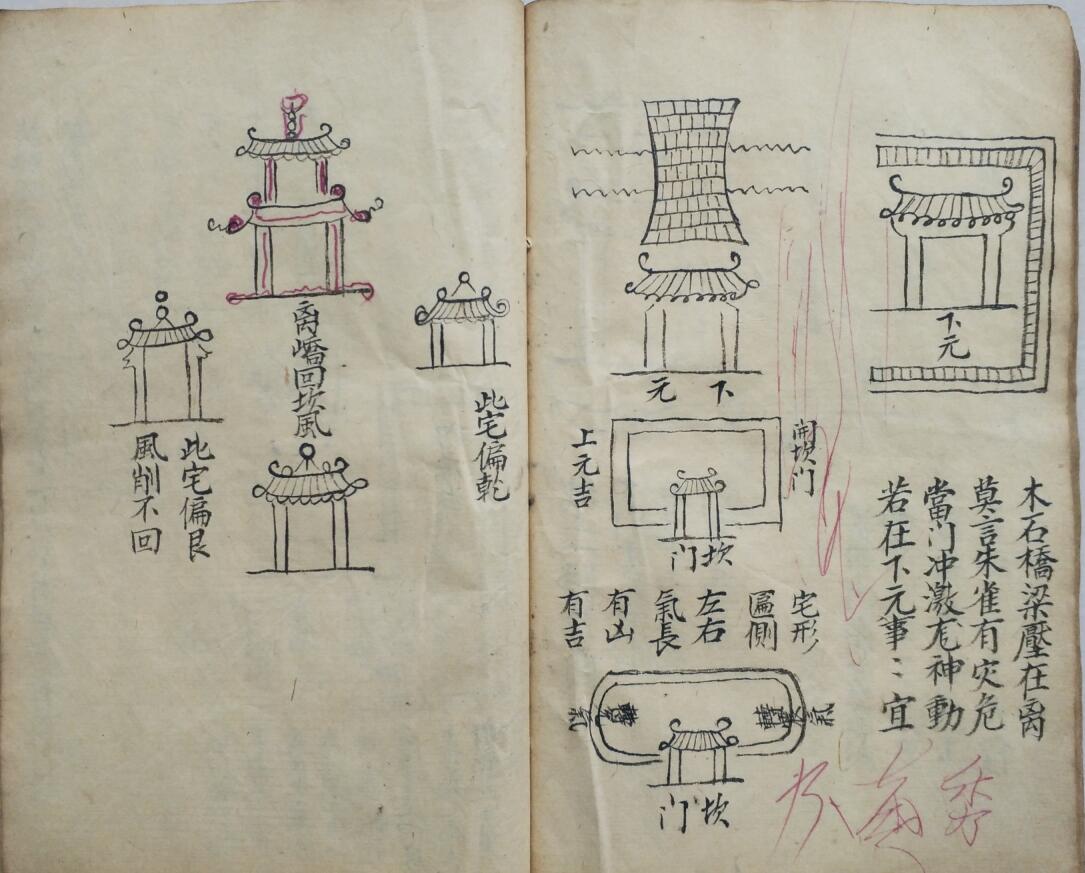 木石橋梁壓在离
莫言朱雀有灾危
當门冲激尨神動
若在下元事〻宜
下元
下元
開坎门
上元吉
坎门
宅形
匾側
左右
氣長
有凶
有吉
坎门
此宅偏乾
离嶠回坎風
此宅偏艮
風削不回